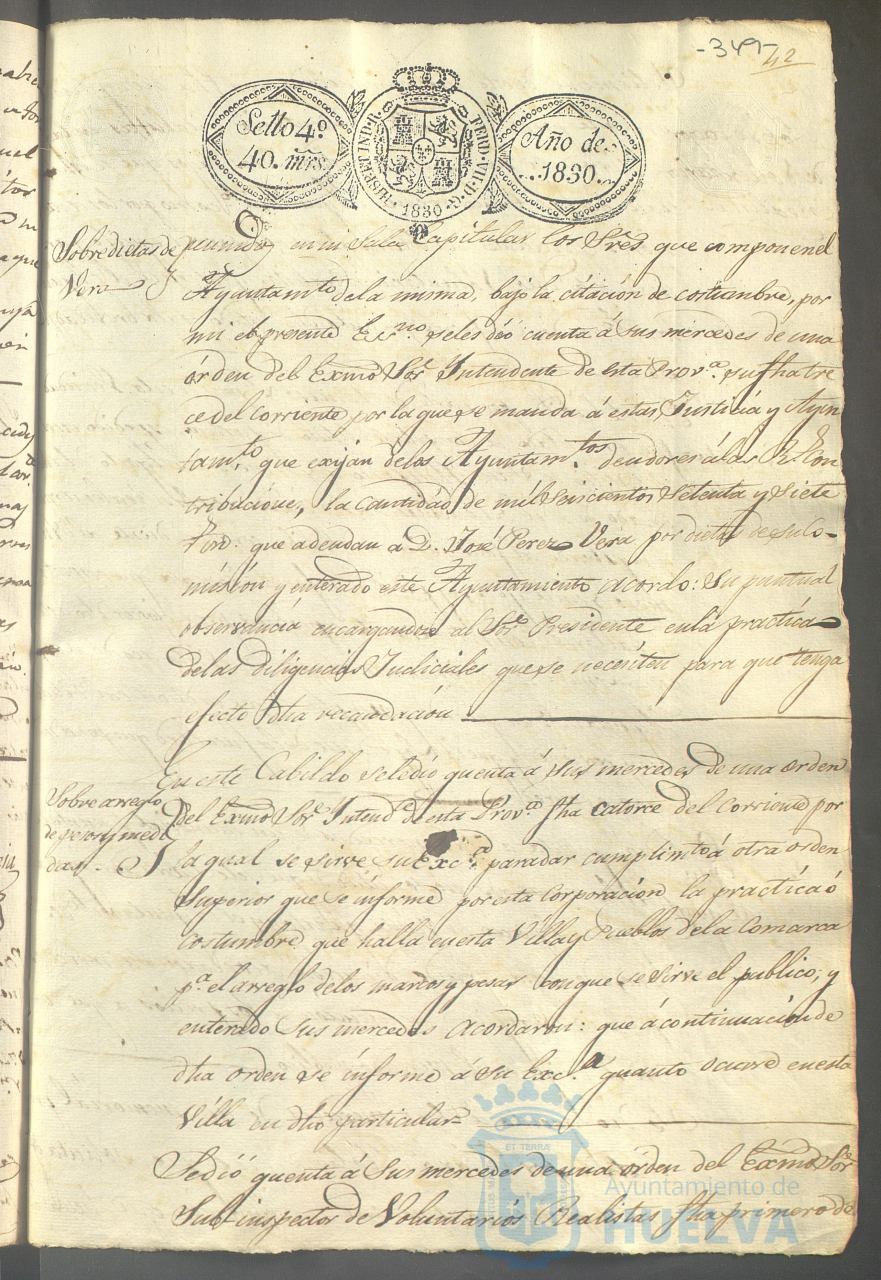 -349-
42
Sello 4º
40. mrs.
HISP. ET IND. R. FERD. VII. D. G. 1830
Año de
1830.
Sobre dietas de
Vera
reunidos en su Sala Capitular los Sres. que componen el
Ayuntamto. de la misma, bajo la citación de costumbre, por
mi el presente Escno. se les dió cuenta á sus mercedes de una
órden del Exmo Sor. Intendente de esta Prova. su fha tre
ce del corriente por la que se manda á estas Justicia y Ayun
tamto. que exijan de los Ayuntamtos. deudores á las Rs. Con
tribuciones, la cantidad de mil seiscientos setenta y siete
que adeudan a D. José Perez Vera por dietas de su Co-
misión y enterado este Ayuntamiento acordo: su puntual
observancia encargandose al Sor. Presidente en la practica
de las diligencias Judiciales que se necesiten para que tenga
efecto dha recaudación
Sobre arreglo
de pesos y medi
das.
En este Cabildo se le dió quenta á sus mercedes de una orden
del Exmo Sor. Intend. de esta Prova. fha catorce del corriente por
la qual se sirve su Exca. para dar cumplimto á otra orden
superior que se informe por esta corporación la practica ó
costumbre que halla en esta Villa y Pueblos de la Comarca
pa. el arreglo de los marcos y pesas con que se sirve el publico, y
enterado sus mercedes acordaron: que á continuación de
dha orden se informe á su Exc.a quanto ocurre en esta
Villa en dho particular
Se dió quenta á sus mercedes de una orden del Exmo Sor.
Sub-inspector de Voluntarios Realistas fha primero de
ET TERRÆ
Ayuntamiento de
HUELVA